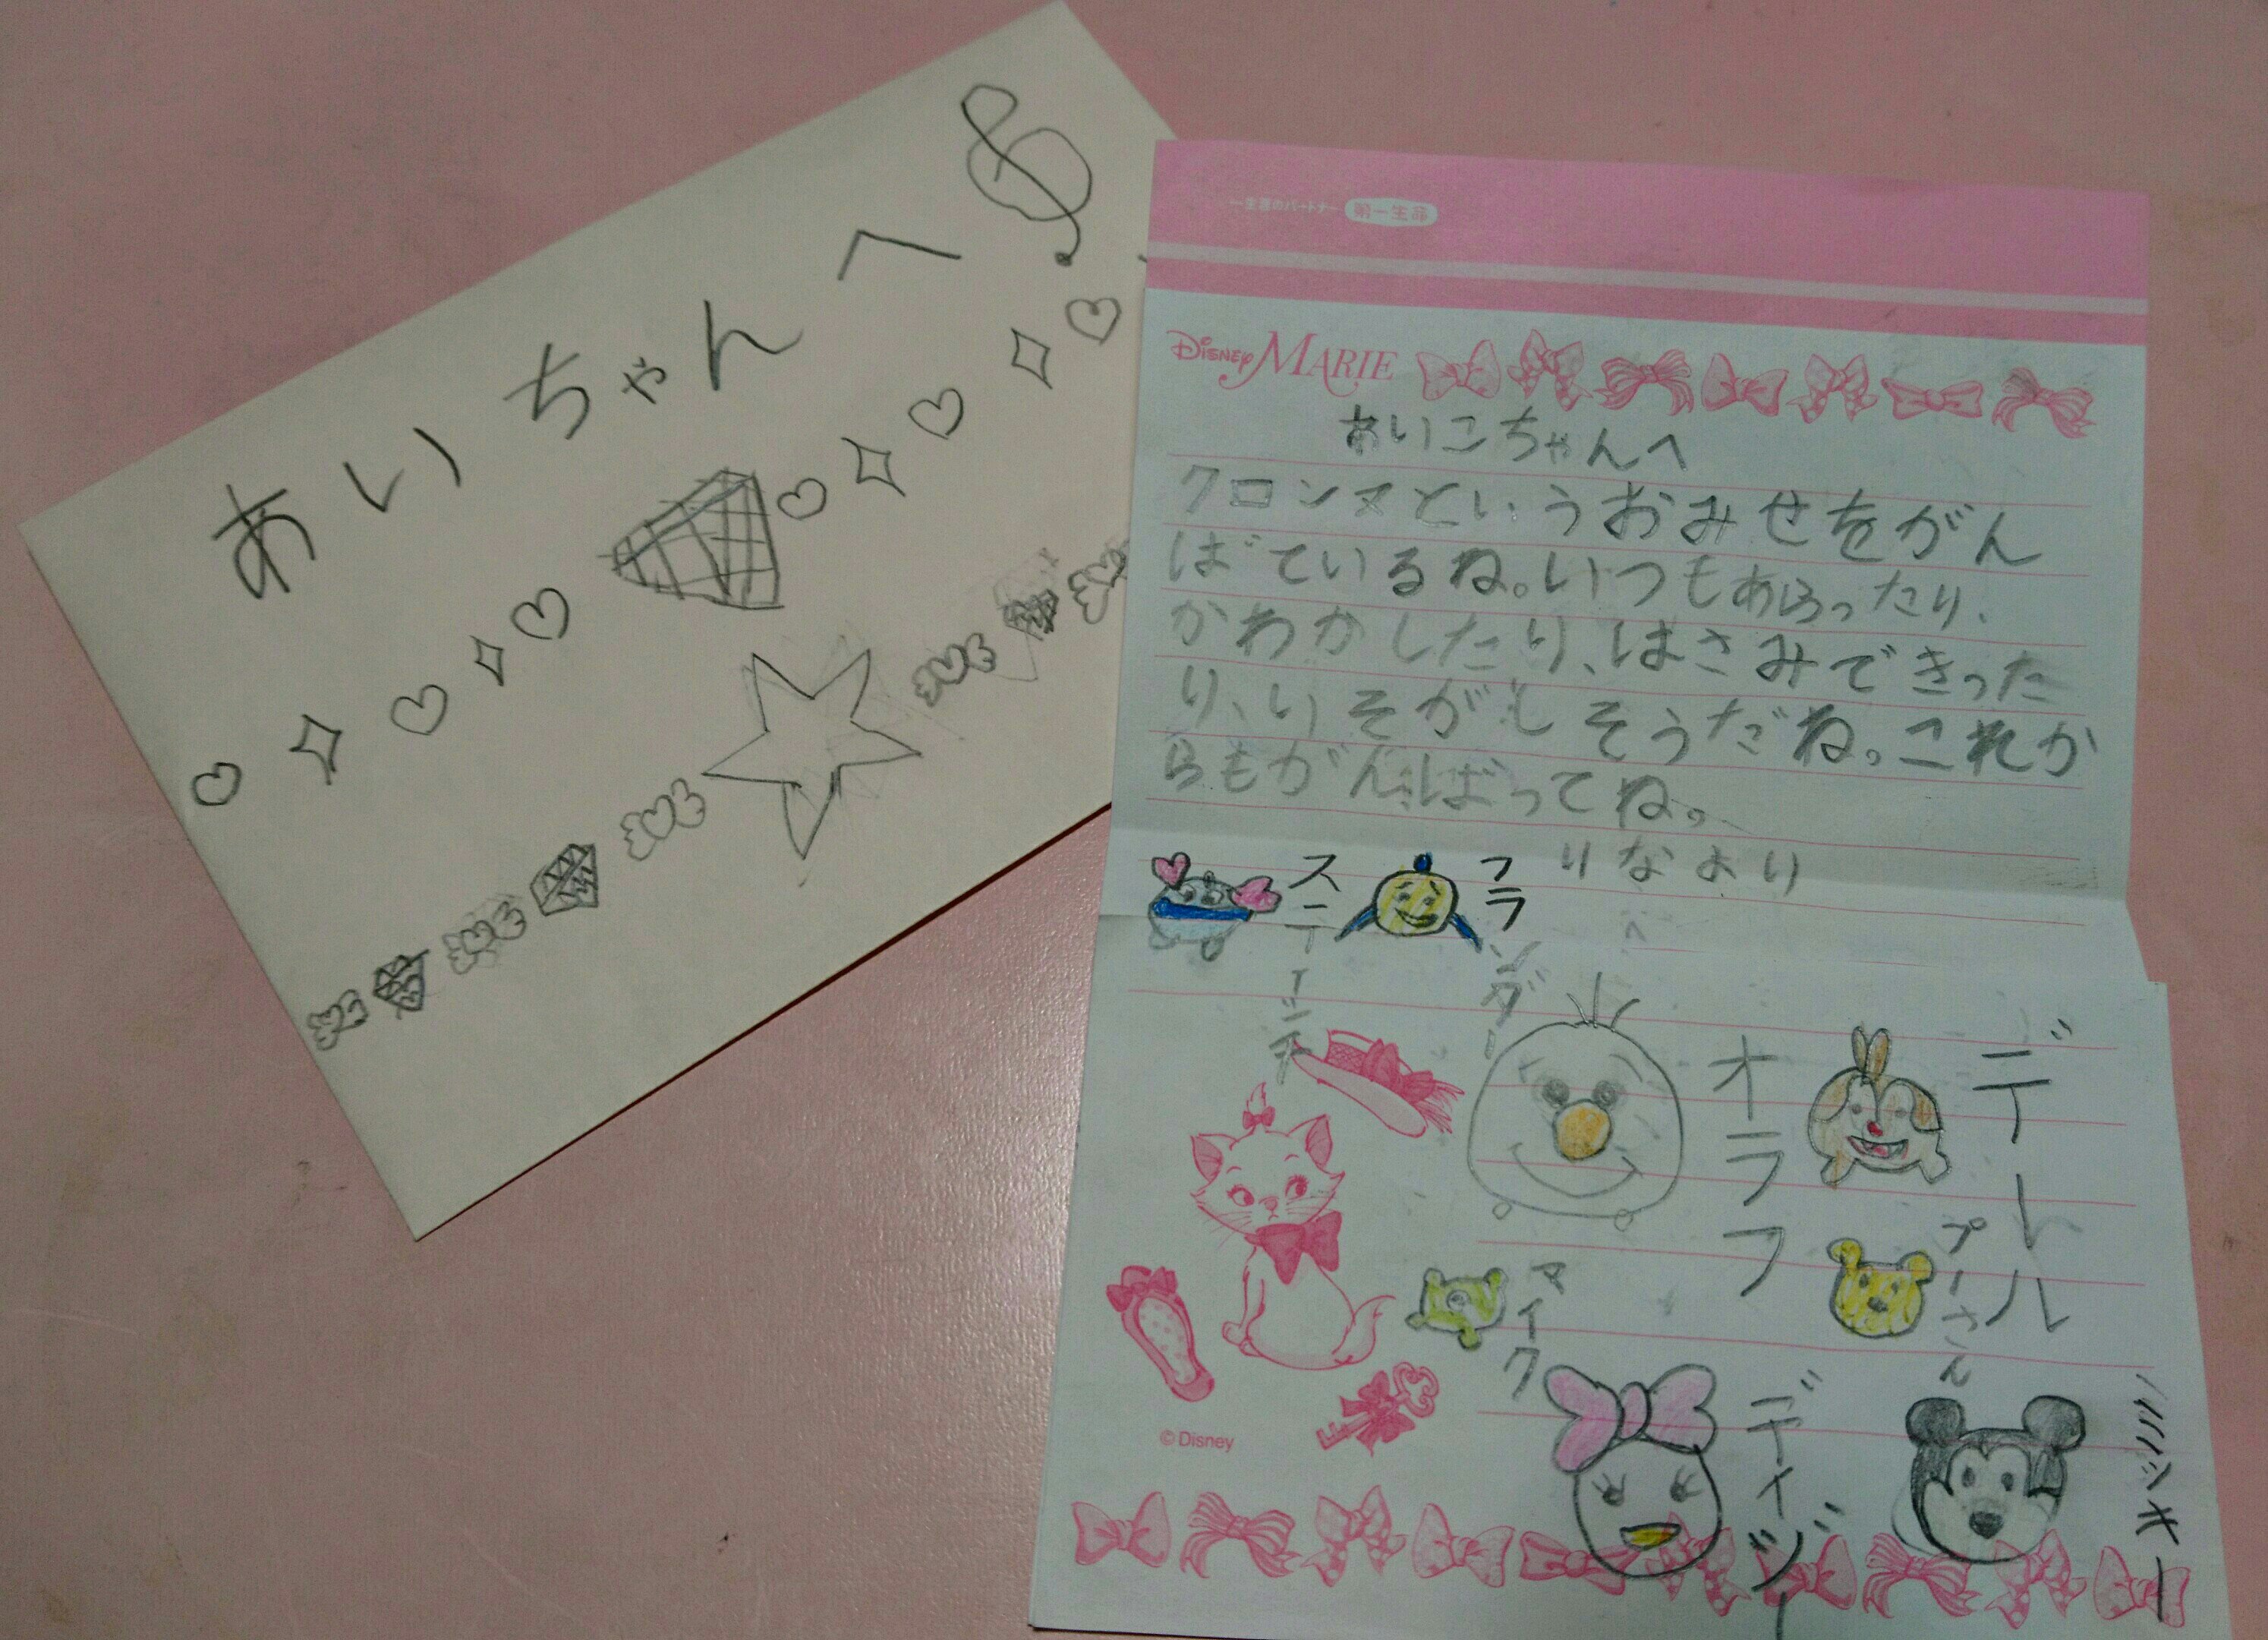 あいちゃんへ
一生涯のパートナー 第一生命
Disney MARIE
あいこちゃんへ
クロンヌというおみせをがん
ばているね。いつもあらったり、
かわかしたり、はさみできった
り、いそがしそうだね。これか
らもがんばってね。
りなより
スティッチ
フランダー
オラフ
デール
マイク
プーさん
デイジー
ミッキー
© Disney